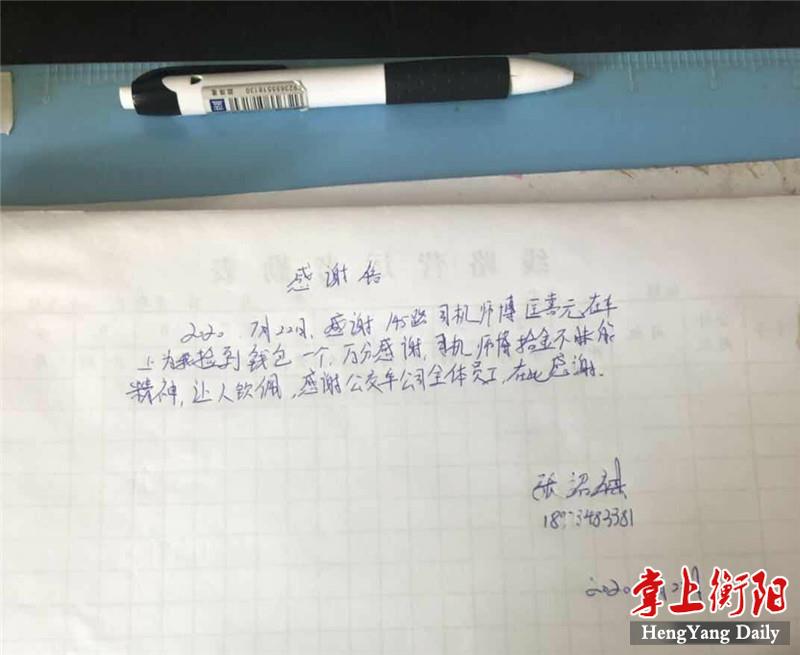 9236855518130
感谢信
2020 7月22日,感谢145路司机师博匡喜元,在车
上为我捡到钱包一个,万分感谢,司机师博拾金不昧的
精神,让人钦佩,感谢公交车公司全体员工,在此感谢.
张
3483381
2020
掌上衡阳
HengYang Daily